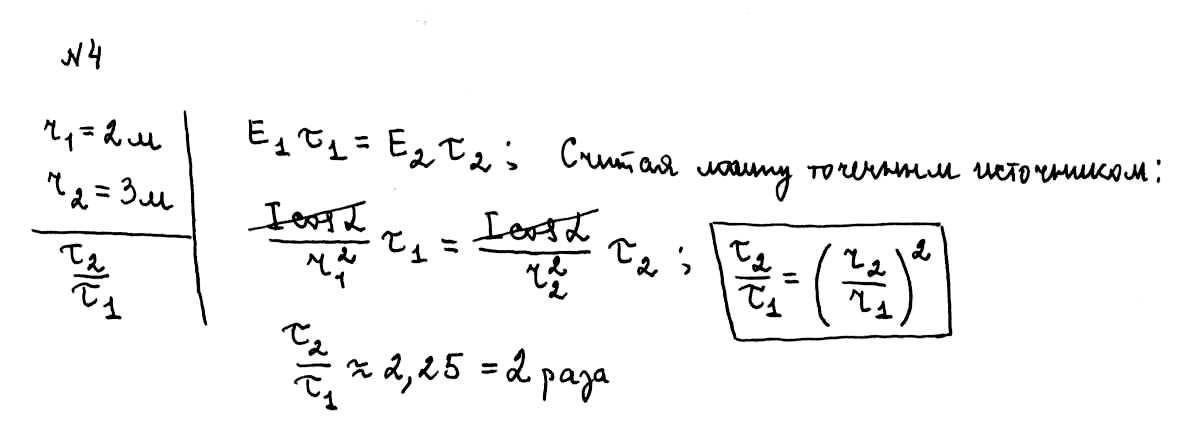 №4
r₁ = 2 м
r₂ = 3 м
τ₂/τ₁
E₁ τ₁ = E₂ τ₂ ; Считая лампу точечным источником:
I cos α / r₁² τ₁ = I cos α / r₂² τ₂ ; τ₂/τ₁ = (r₂/r₁)²
τ₂/τ₁ ≈ 2,25 = 2 раза